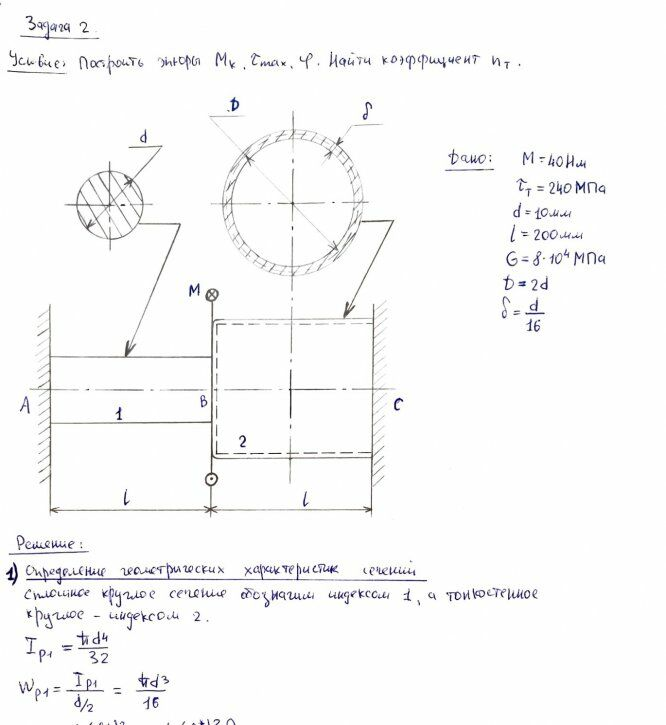 Задача 2
Условие: Построить эпюры Mк, τmax, φ. Найти коэффициент nт.
D
δ
d
Дано: M = 40 Нм
τт = 240 МПа
d = 10 мм
l = 200 мм
G = 8·10⁴ МПа
D = 2d
δ = d/16
M
A
B
C
1
2
l
l
Решение:
1) Определение геометрических характеристик сечений
Сплошное круглое сечение обозначим индексом 1, а тонкостенное
круглое – индексом 2.
Ip1 = πd⁴/32
Wp1 = Ip1/(d/2) = πd³/16